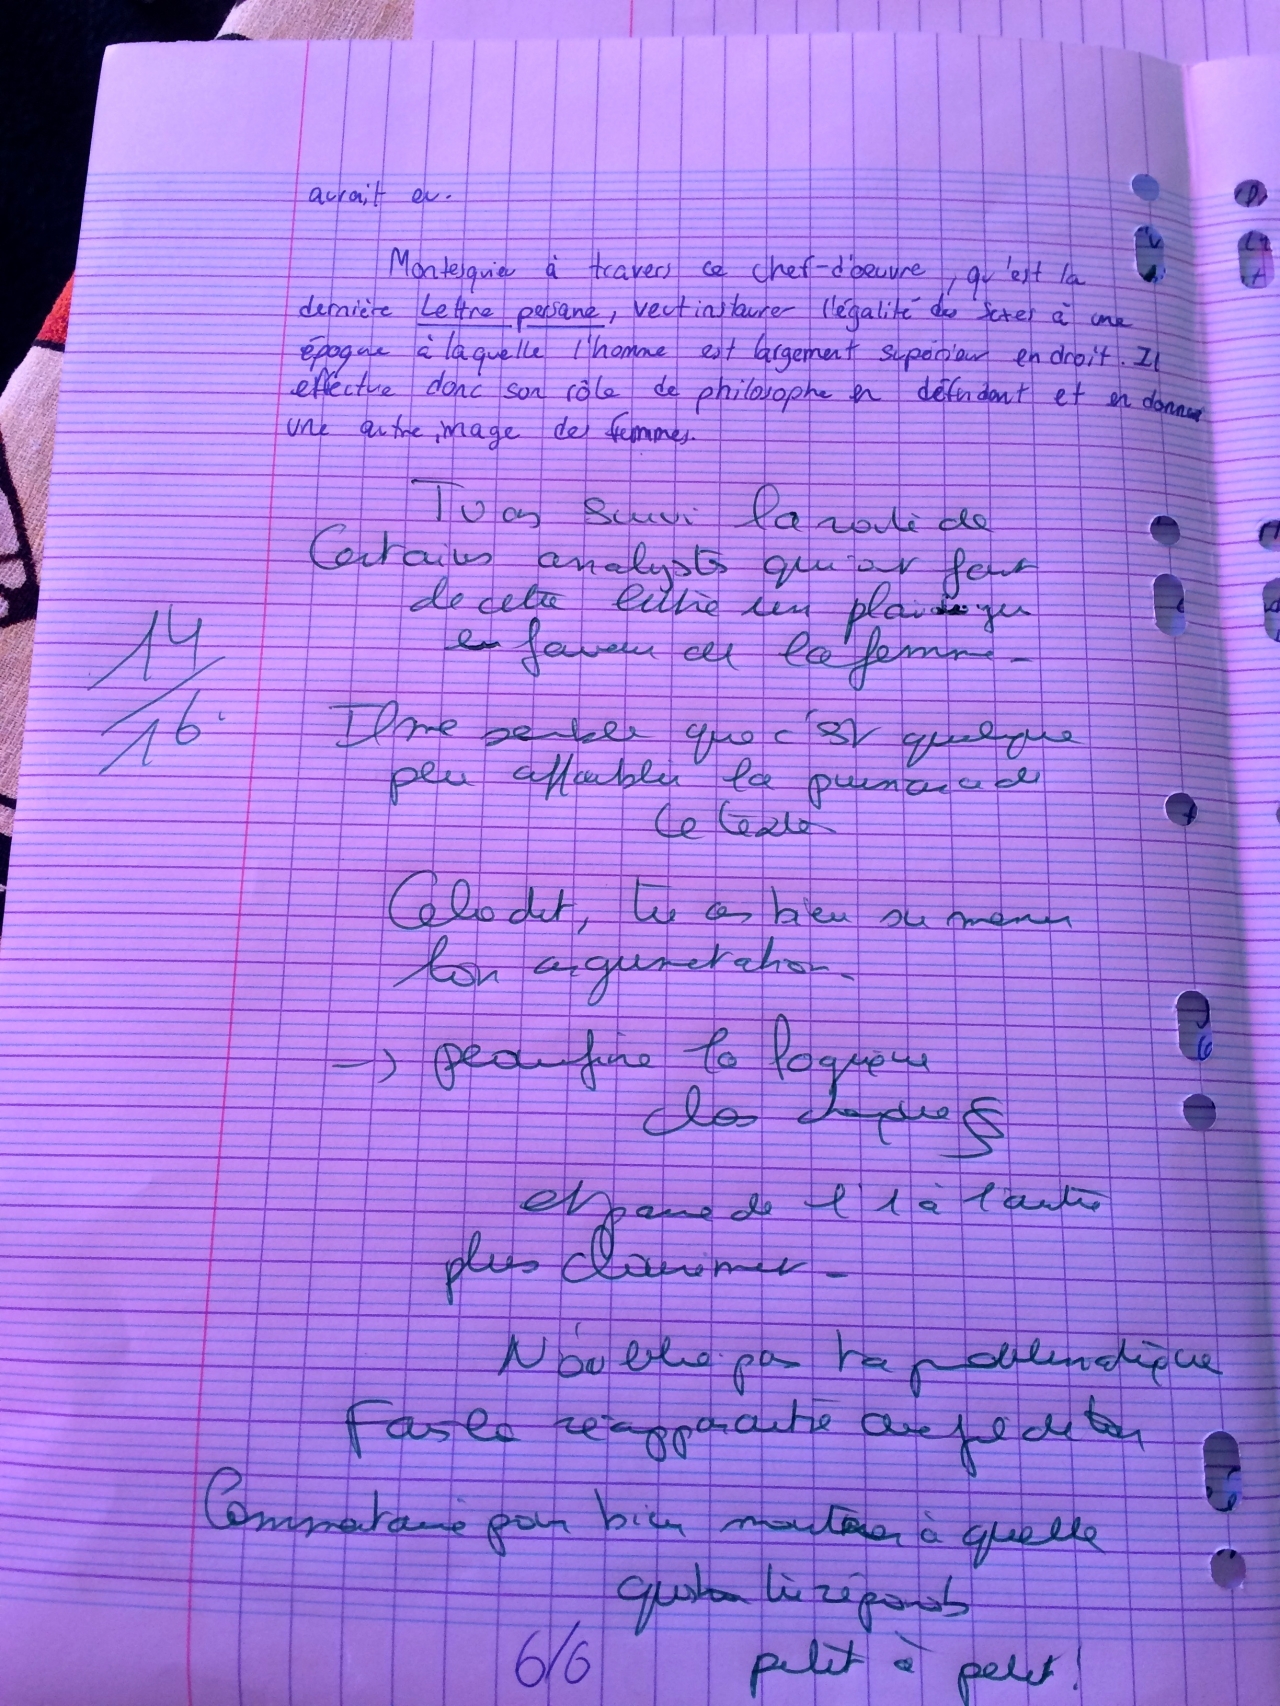 aurait eu.
Montesquieu à travers ce chef-d'oeuvre, qu'est la
dernière Lettre persane, veut instaurer l'égalité des sexes à une
époque à laquelle l'homme est largement supérieur en droit. Il
effectue donc son rôle de philosophe en défendant et en donnant
une autre image des femmes.
Tu as suivi la voie de
Certains analystes qui ont fait
de cette lettre un plaidoyer
en faveur de la femme -
14
/16
Il me semble que c'est quelque
peu affaiblir la puissance de
ce texte
Cela dit, tu as bien su mener
ton argumentation.
-> peaufine la logique
ds chaque §
et passe de l'1 à l'autre
plus clairement -
N'oublie pas ta problématique
Fais la réapparaître au fil de ton
Commentaire pour bien montrer à quelle
question tu réponds
petit à petit !
6/6